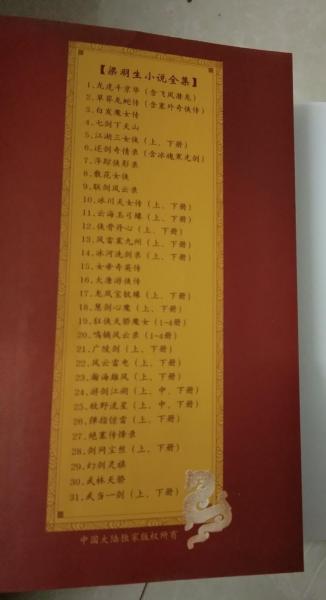 【梁羽生小说全集】
1.龙虎斗京华（含飞凤潜龙）
2.草莽龙蛇传（含塞外奇侠传）
3.白发魔女传
4.七剑下天山
5.江湖三女侠（上、下册）
6.还剑奇情录（含冰魄寒光剑）
7.萍踪侠影录
8.散花女侠
9.联剑风云录
10.冰川天女传（上、下册）
11.云海玉弓缘（上、下册）
12.侠骨丹心（上、下册）
13.风雷震九州（上、下册）
14.冰河洗剑录（上、下册）
15.女帝奇英传
16.大唐游侠传
17.龙凤宝钗缘（上、下册）
18.慧剑心魔（上、下册）
19.狂侠天骄魔女（1-4册）
20.鸣镝风云录（1-4册）
21.广陵剑（上、下册）
22.风云雷电（上、下册）
23.瀚海雄风（上、下册）
24.游剑江湖（上、中、下册）
25.牧野流星（上、中、下册）
26.弹指惊雷（上、下册）
27.绝塞传烽录
28.剑网尘丝（上、下册）
29.幻剑灵旗
30.武林天骄
31.武当一剑（上、下册）
中国大陆独家版权所有